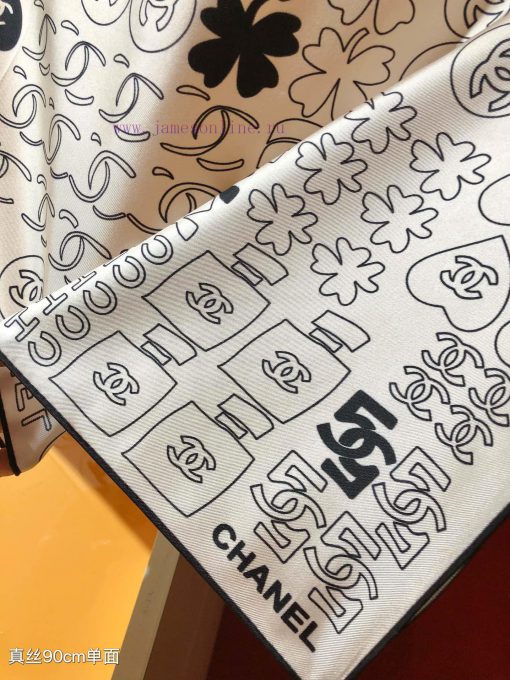 www.jamesonline.ru
CHANEL
真丝90cm单面